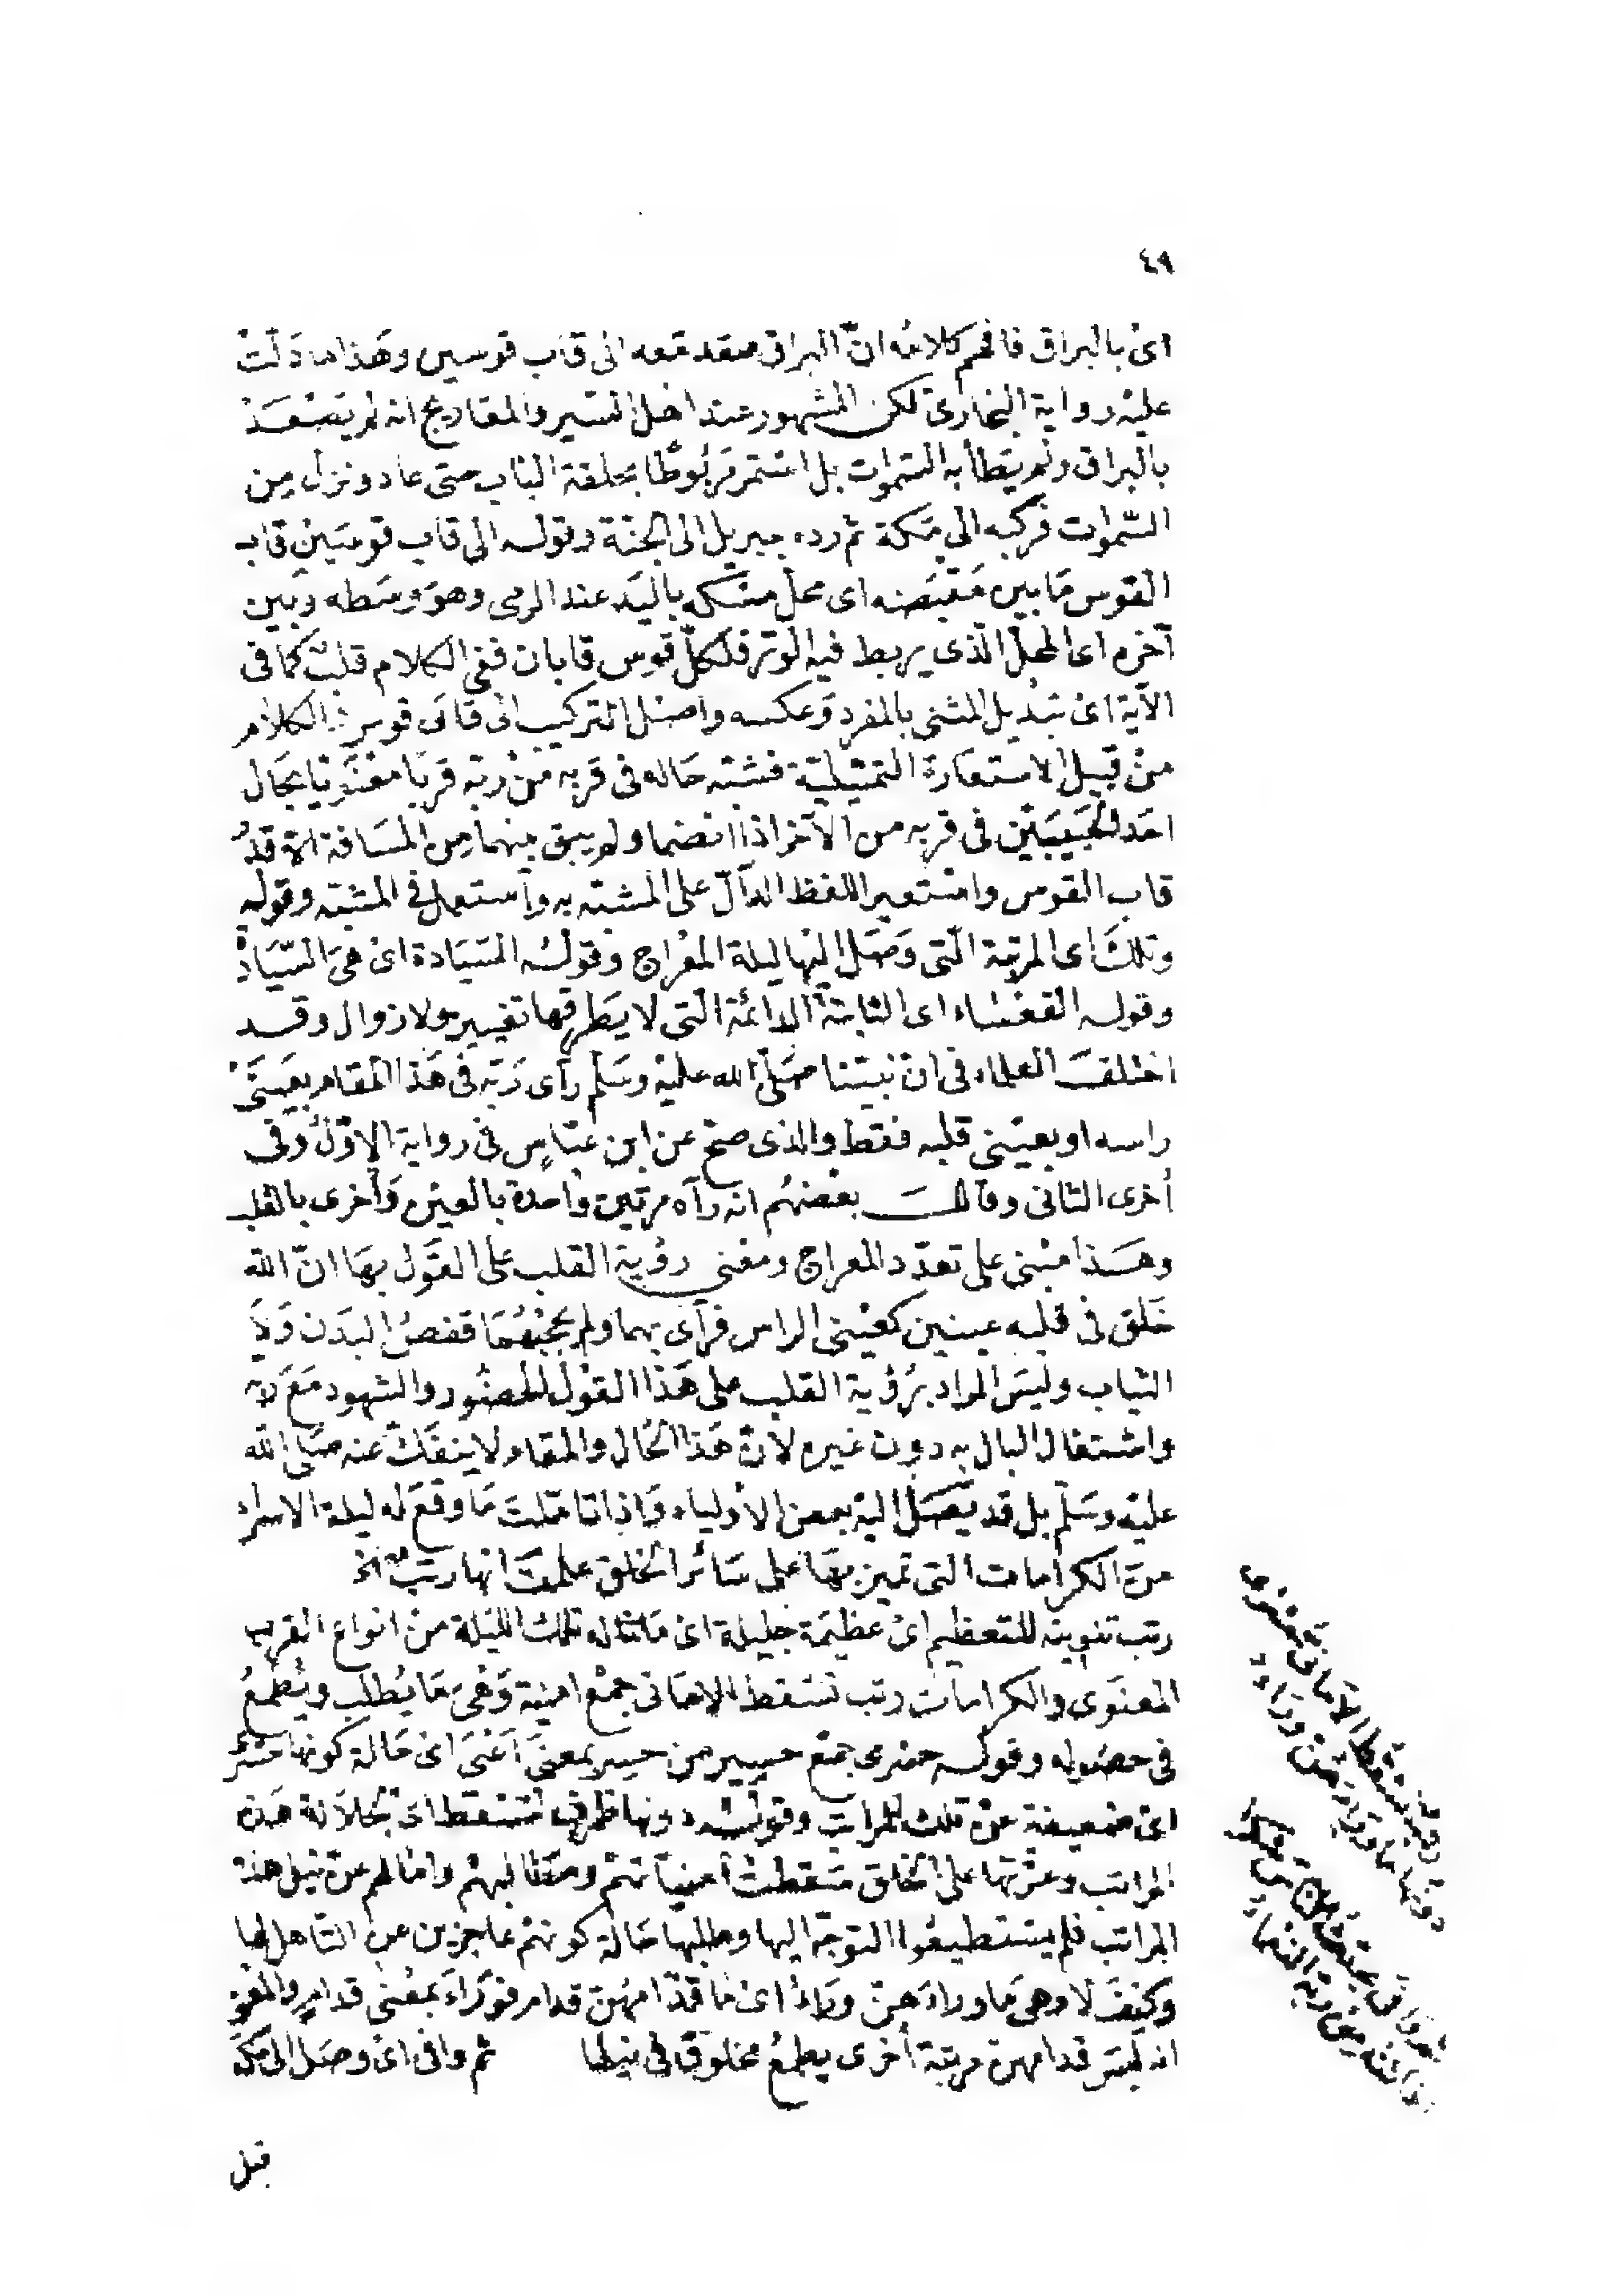 ٤٩
اى بالبراق فافهم كلامه ان البراق صعد معه الى قاب قوسين وهذا ما دلت
عليه رواية البخارى لكن المشهور عند اهل السير والمعاريج انه لم يصعد
بالبراق ولم يطأ به السموات بل استمر مربوطا بحلقة الباب حتى عاد ونزل من
السموات فركبه الى مكة ثم رده جبريل الى الجنة وقوله الى قاب قوسين قاب
القوس ما بين مقبضه اى محل مسكه باليد عند الرمى وهو وسطه وبين
آخره اى المحل الذى يربط فيه الوتر فلكل قوس قابان ففى الكلام قلب كما فى
الآية اى تبديل المثنى بالمفرد وعكسه واصل التركيب الى قابى قوس الكلام
من قبيل الاستعارة التمثيلية فشبه حاله فى قربه من ربه قربا معنويا بحال
احد الحبيبين فى قربه من الآخر اذا انضما ولم يبق بينهما من المسافة الا قدر
قاب القوس واستعير اللفظ الدال على المشبه به واستعمل فى المشبه وقوله
وتلك اى المرتبة التى وصل اليها ليلة المعراج وقوله السيادة اى هى السيادة
وقوله القعساء اى الثابتة الدائمة التى لا يطرقها تغيير ولا زوال وقد
اختلف العلماء فى ان نبينا صلى الله عليه وسلم رآى ربه فى هذا المقام بعينى
راسه او بعينى قلبه فقط والذى صح عن ابن عباس فى رواية الاول وفى
أخرى الثانى وقال بعضهم انه رآه مرتين واحدة بالعين وأخرى بالقلب
وهذا مبنى على تعدد المعراج ومعنى رؤية القلب على القول بها ان الله
خلق فى قلبه عينين كعينى الراس فرآى بهما ولم يحجبهما قفص البدن ولا
الثياب وليس المراد برؤية القلب على هذا القول الحضور والشهود مع ربه
واشتغال البال به دون غيره لان هذا الحال والمقام لا ينفك عنه صلى الله
عليه وسلم بل قد يصل اليه بعض الأولياء واذا تاملت ما وقع له ليلة الاسراء
من الكرامات التى تميز بها على سائر الخلق علمت انها رتب الخ
رتب تنوينه للتعظيم اى عظيمة جليلة اى ما ناله تلك الليلة من انواع القرب
المعنوى والكرامات رتب تسقط الامانى جمع امنية وهى ما يطلب ويطمع
فى حصوله وقوله حسرى جمع حسير من حسر بمعنى أعيى اى حالة كونها حسرى
اى ضعيفة عن تلك المراتب وقوله دونها ظرف لتسقط اى لجلالة هذه
المراتب وعزتها على الخلق سقطت أمنياتهم ومطالبهم وامالهم عن نيل هذه
المراتب فلم يستطيعوا التوجه اليها وطلبها حالة كونهم عاجزين عن التاهل لها
وكيف لا وهى ما وراءهن وراء اى ما قدامهن قدام فوراء بمعنى قدام والمعنى
انه ليس قدامهن مرتبة أخرى يطمع مخلوق فى نيلها ثم وافى اى وصل الى مكة
قبل
رتب تسقط الامانى حسرى
دونها ما وراءهن وراء